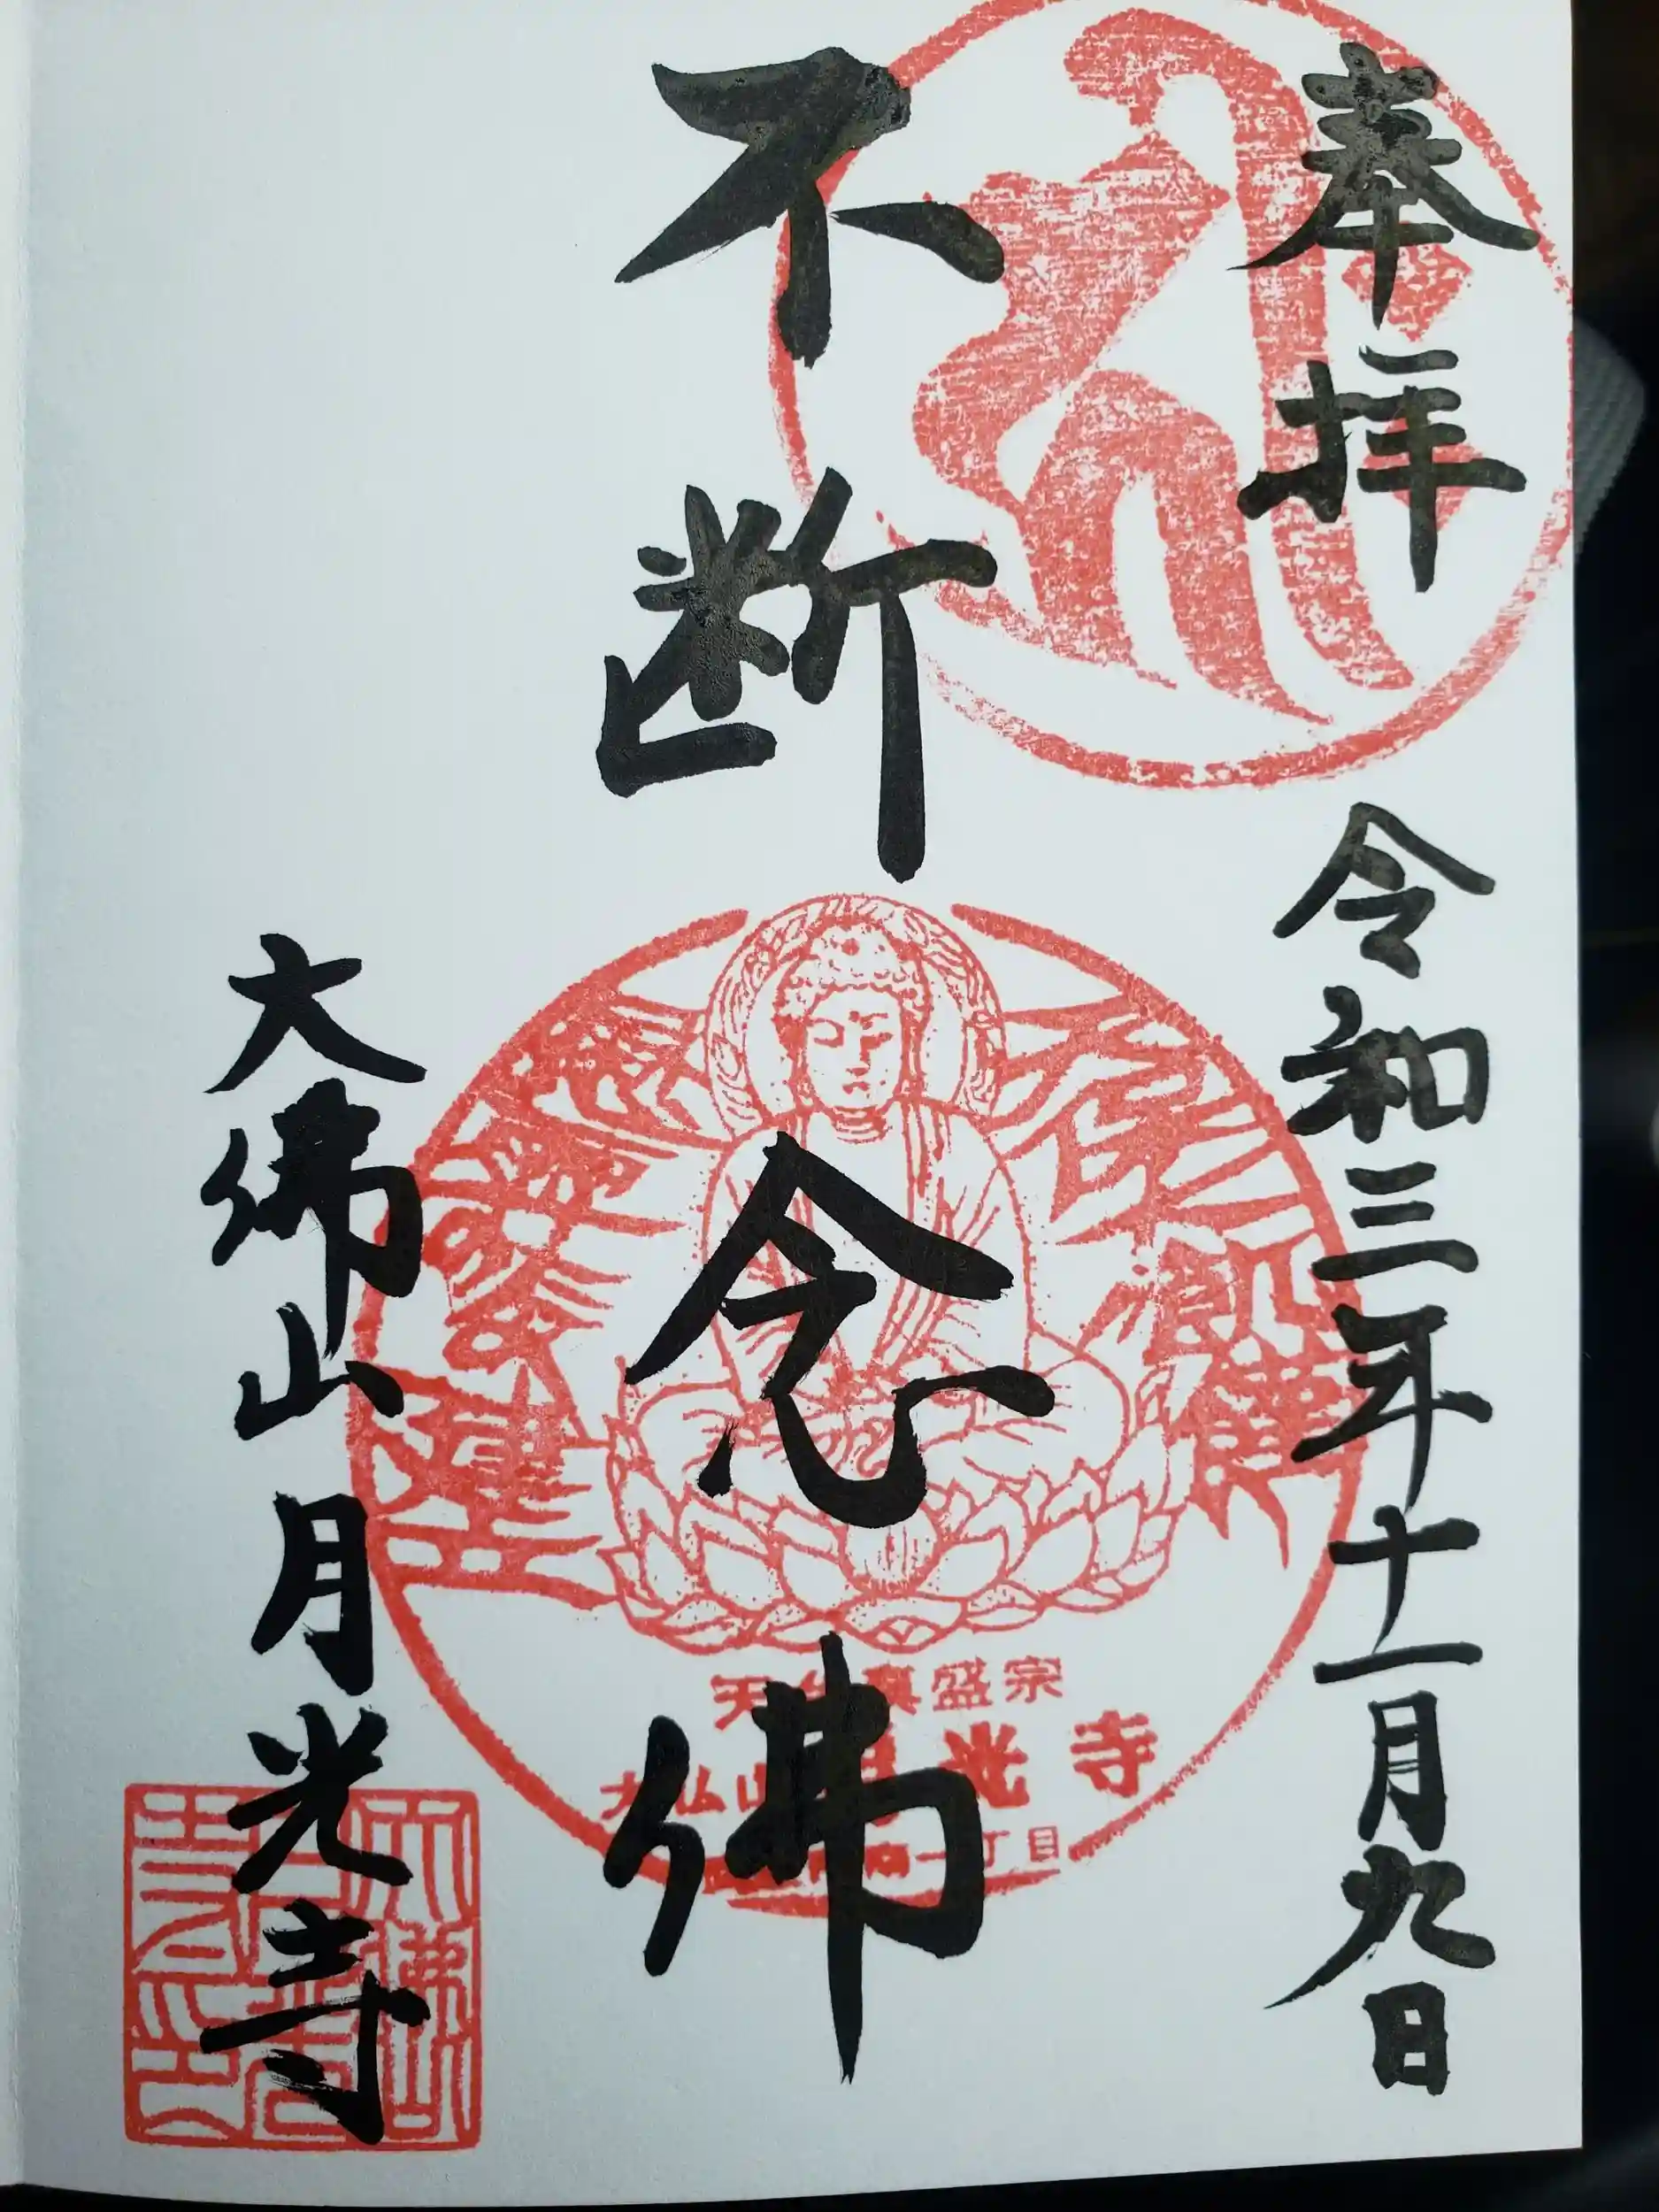 奉拝
令和三年十一月九日
不断念佛
天台真盛宗
大仏山月光寺
丁目
大佛山月光寺